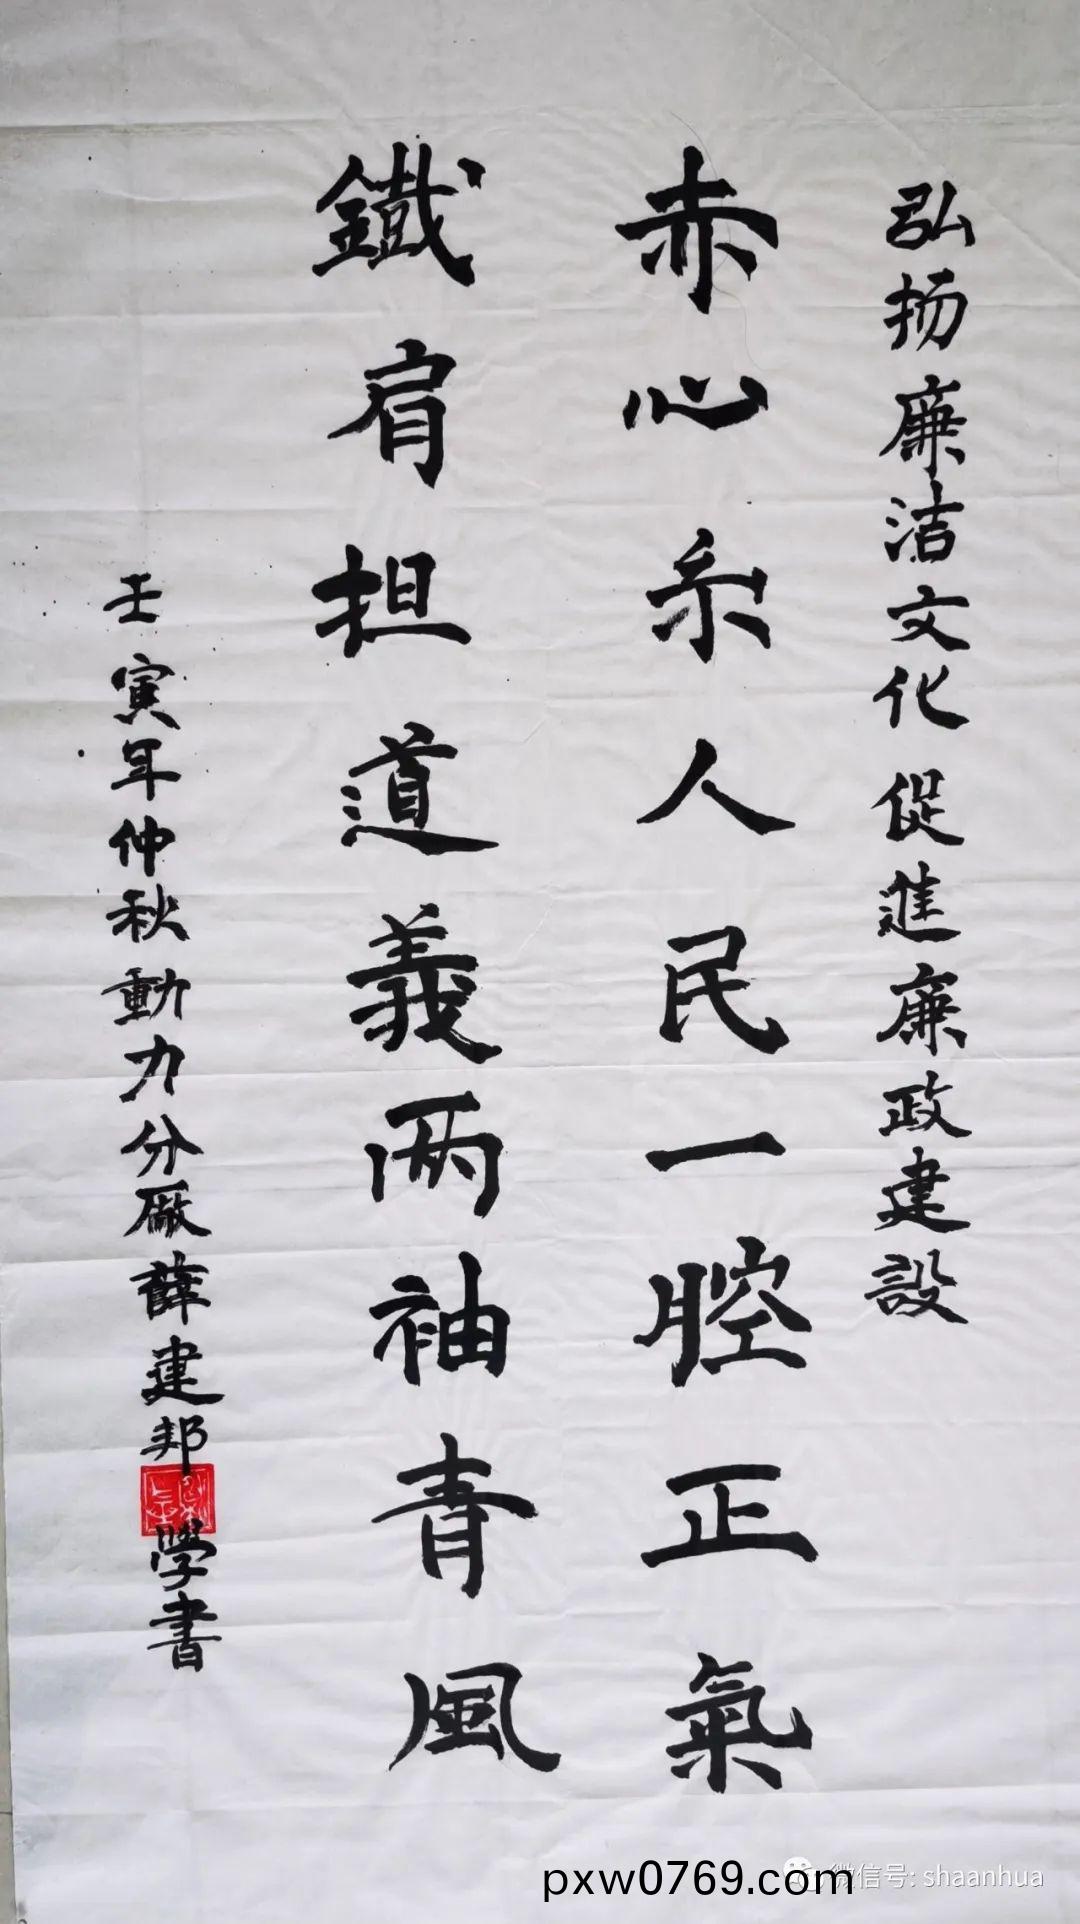 弘扬廉洁文化促進廉政建設
赤心系人民一腔正氣
鐵肩担道義两袖青風
壬寅年仲秋動力分廠薛建邦學書
微信号: shaanhua
pxw0769.com